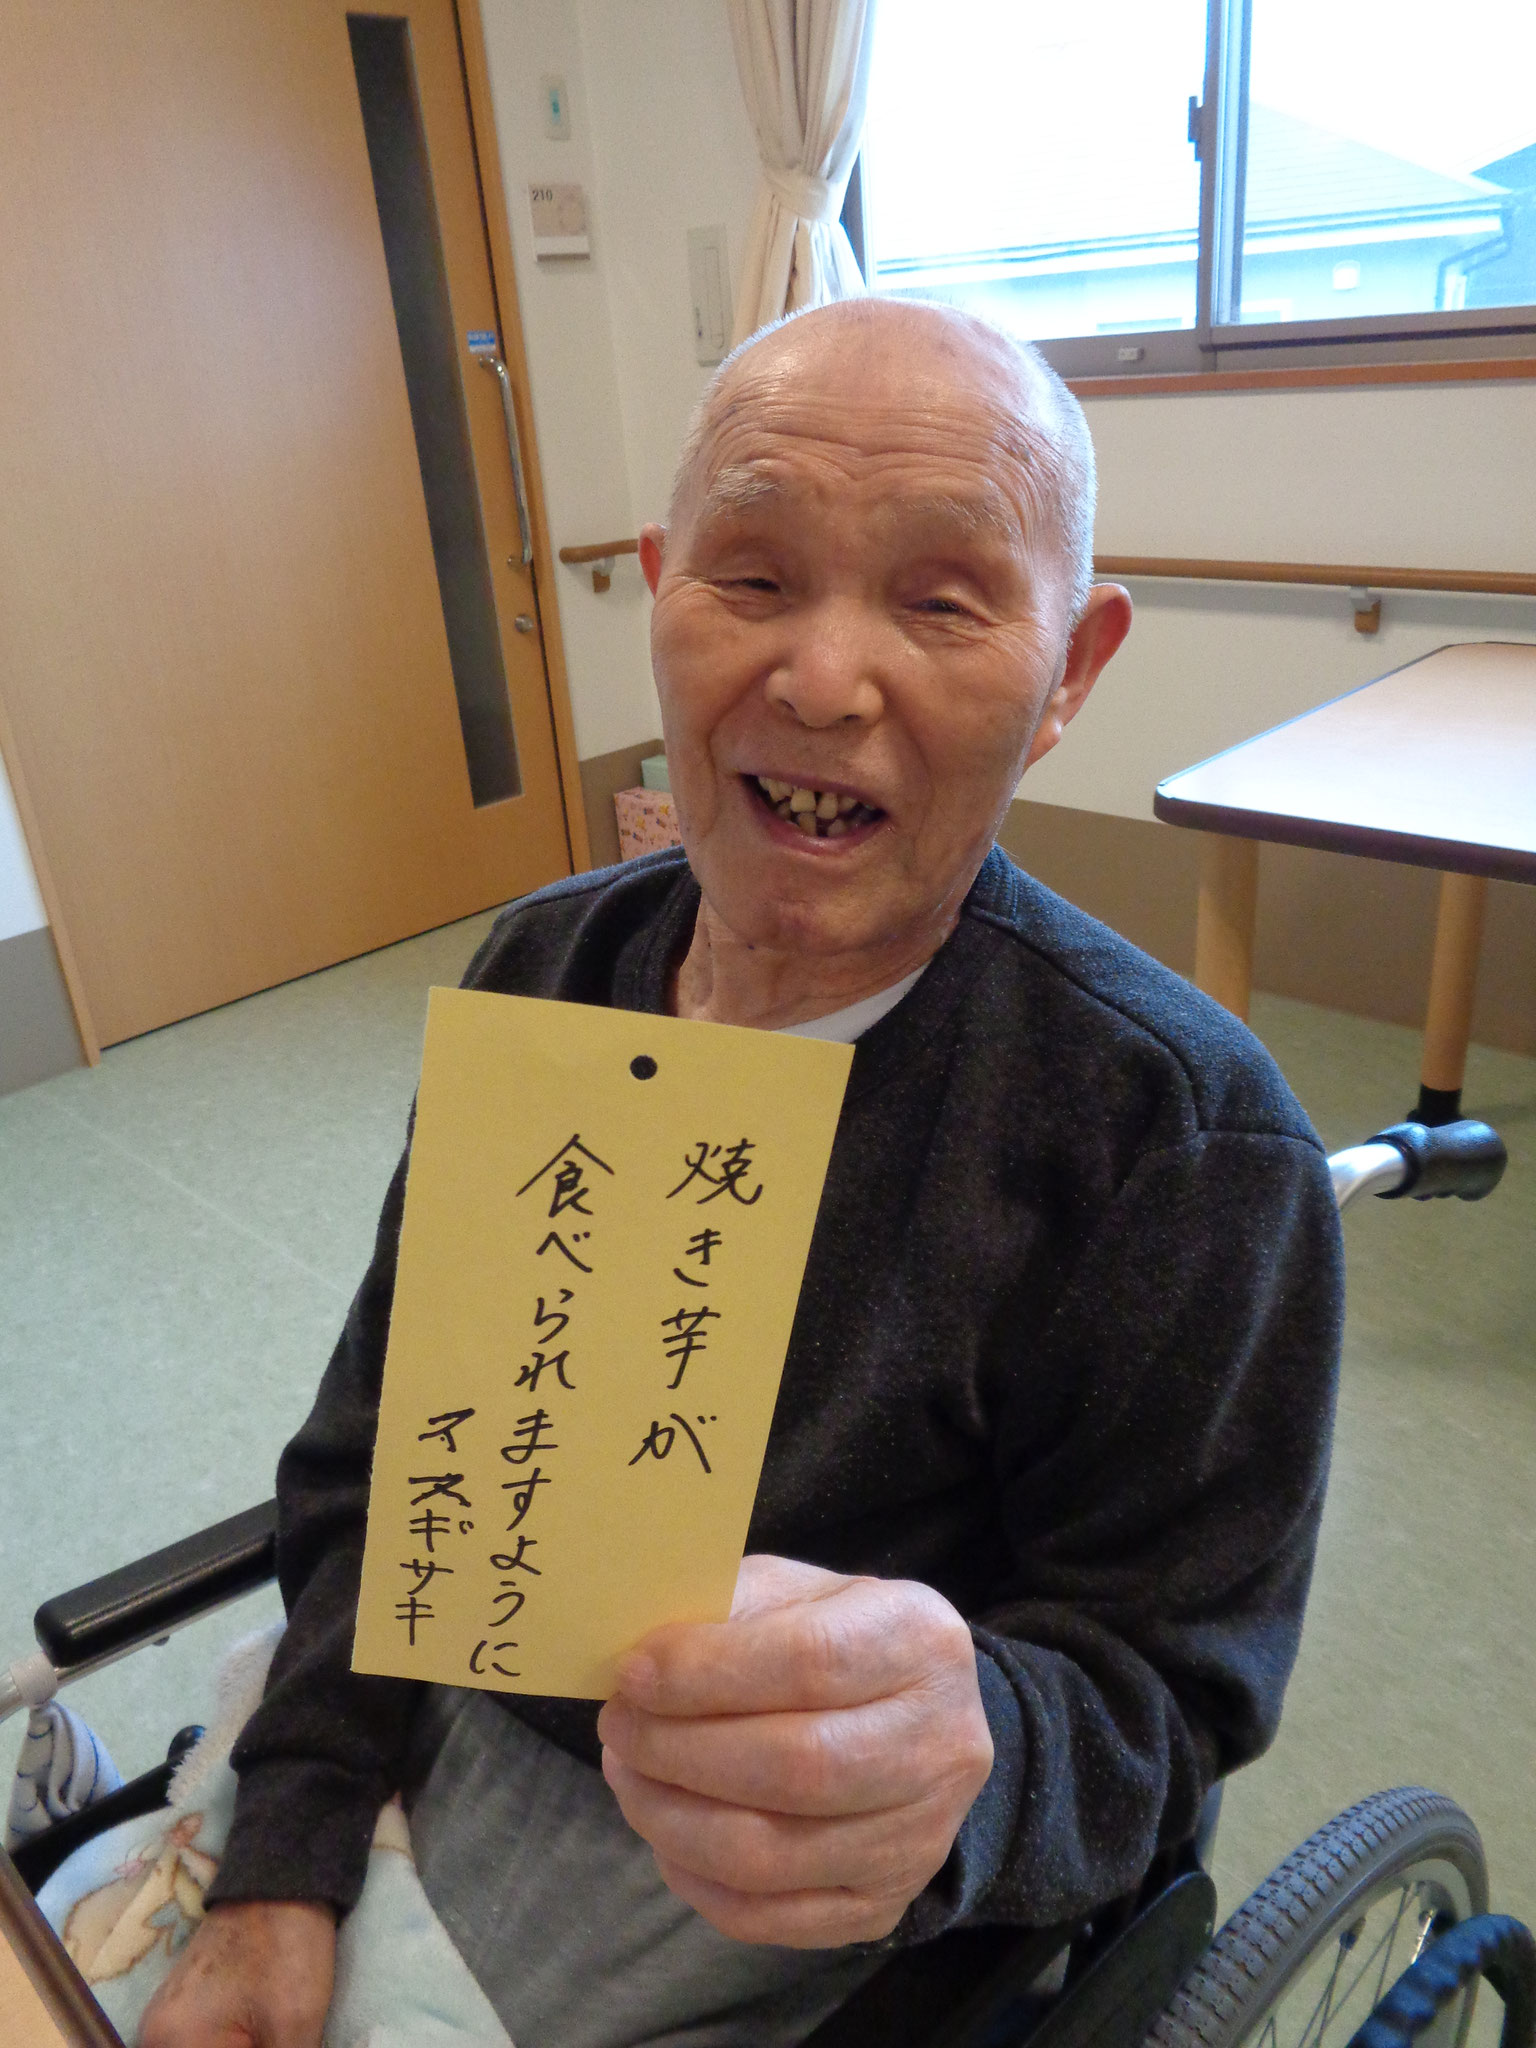 焼き芋が
食べられますように
マスギサキ
210